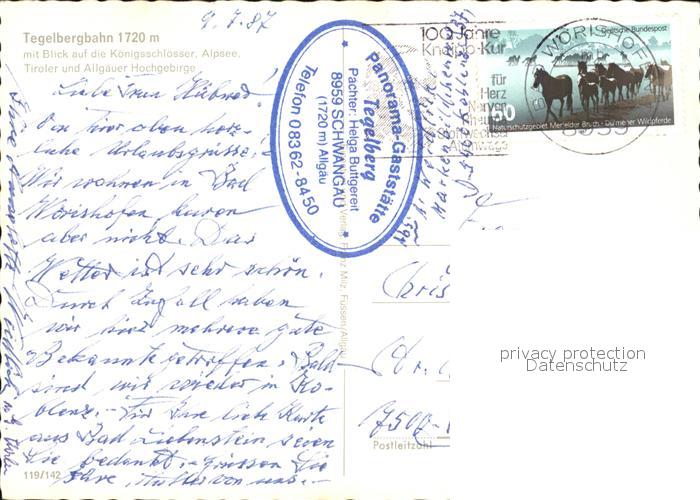 9.7.87
Tegelbergbahn 1720 m
mit Blick auf die Königsschlösser, Alpsee,
Tiroler und Allgäuer Hochgebirge
Liebe Frau
von hier oben herz-
liche Urlaubsgrüsse!
Wir wohnen in Bad
Wörishofen, kuren
aber nicht. Das
Wetter ist sehr schön.
Durch Zufall haben
wir hier mehrere gute
Bekannte getroffen. Bald
sind wir wieder in Ko-
blenz. - Für Ihre liebe Karte
aus Bad Liebenstein seien
Sie bedankt. - Grüssen Sie
Ihre Mutter von uns. -
119/142
Panorama-Gaststätte
Tegelberg
Pächter: Helga Buttgereit
8959 SCHWANGAU
(1720 m) Allgäu
Telefon 08362-8450
Franz Milz, Füssen/Allgäu
100 Jahre
Kneipp-Kur
für
Herz
Nerven
Kreislauf
Stoffwechsel
Atemwege
WÖRISHOFEN
Deutsche Bundespost
50
Naturschutzgebiet Merfelder Bruch - Dülmener Wildpferde
Chris
Str.
7500
Postleitzahl
privacy protection
Datenschutz